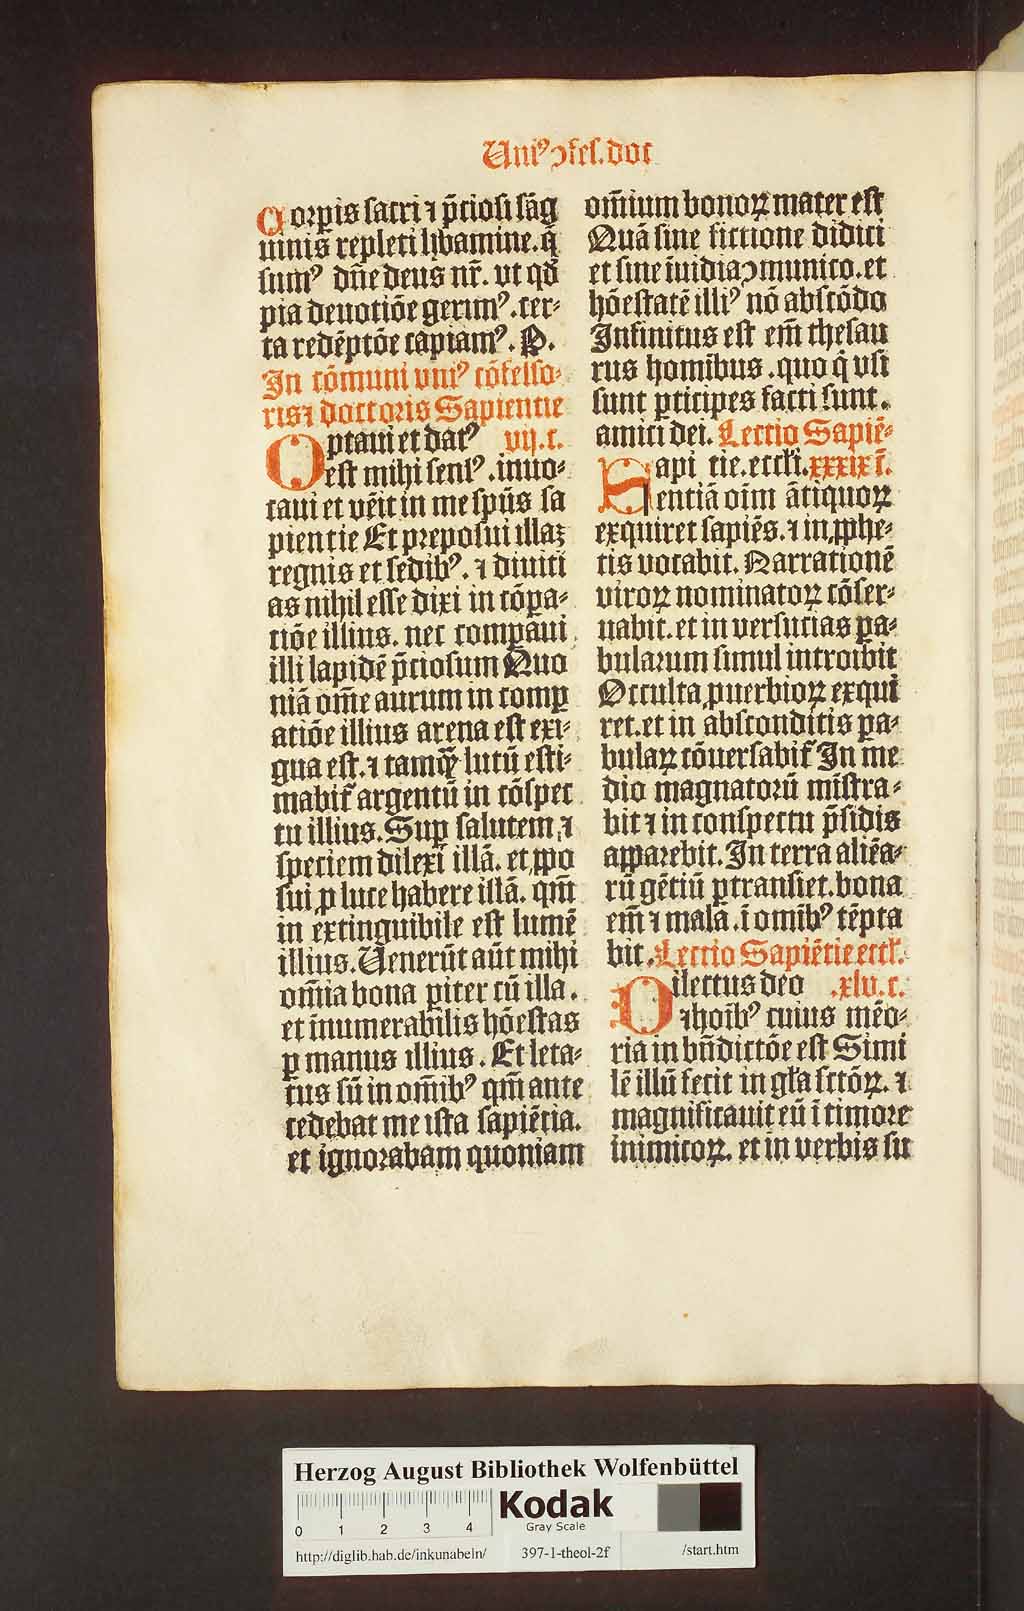 Uni⁹ ↄfes.doc
Corꝑis sacri ⁊ p̃ciosi sãg
uinis repleti libamine.q̃
sum⁹ dñe deus nr̃. vt qđ
pia deuotiõe gerim⁹.cer-
ta redẽptõe capiam⁹. P.
In cõmuni vni⁹ cõfesso-
ris⁊ doctoris Sapientie
Optaui et dat⁹ vij.c.
est mihi sens⁹.inuo-
caui et vẽit in me spũs sa
pientie Et preposui illaʒ
regnis et sedib⁹. ⁊ diuiti
as nihil esse dixi in cõpa-
tiõe illius. nec comparaui
illi lapidẽ p̃ciosum Quo
niã om̃e aurum in comꝑ
atiõe illius arena est exi-
gua est. ⁊ tamqʒ̃ lutũ esti-
mabit᷑ argentũ in cõspec
tu illius. Suꝑ salutem ⁊
speciem dilexi illã. et ꝓpo
sui ꝓ luce habere illã. qm̃
in extinguibile est lumẽ
illius. Uenerũt aũt mihi
om̃ia bona ꝑiter cũ illa.
et ĩnumerabilis hõestas
ꝑ manus illius. Et leta-
tus sũ in om̃ib⁹ qm̃ ante
cedebat me ista sapiẽtia.
et ignorabam quoniam
om̃ium bonoꝝ mater est
Quã sine fictione didici
et sine ĩuidiaↄmunico.et
hõestatẽ illi⁹ nõ abscõdo
Infinitus est em̃ thesau
rus homĩbus.quo q̇ vsi
sunt ꝑticipes facti sunt.
amici dei. Lectio Sapiẽ-
Sapi tie.eccłi.xxxix c̃.
entiã oĩm ãtiquoꝝ
exquiret sapiẽs. ⁊ in ꝓphe-
tis vocabit. Narrationẽ
viroꝝ nominatoꝝ cõser-
uabit. et in versucias pa-
bularum simul introibit
Occulta ꝓuerbioꝝ exqui
ret. et in absconditis pa-
bulaꝝ cõuersabit᷑ In me
dio magnatorũ mĩstra-
bit ⁊ in conspectu p̃sidis
apparebit. In terra aliẽa-
rũ gẽtiũ ꝑtransiet.bona
em̃ ⁊ mala.ĩ omĩb⁹ tẽpta
bit. Lectio Sapiẽtie eccł.
Dilectus deo .xlv.c.
⁊hoĩb⁹ cuius mẽo-
ria in bñdictõe est Simi
lẽ illũ fecit in gła sctõꝝ. ⁊
magnificauit eũ ĩ timore
inimicoꝝ. et in verbis su
Herzog August Bibliothek Wolfenbüttel
0 1 2 3 4
Kodak
Gray Scale
http://diglib.hab.de/inkunabeln/ 397-1-theol-2f /start.htm